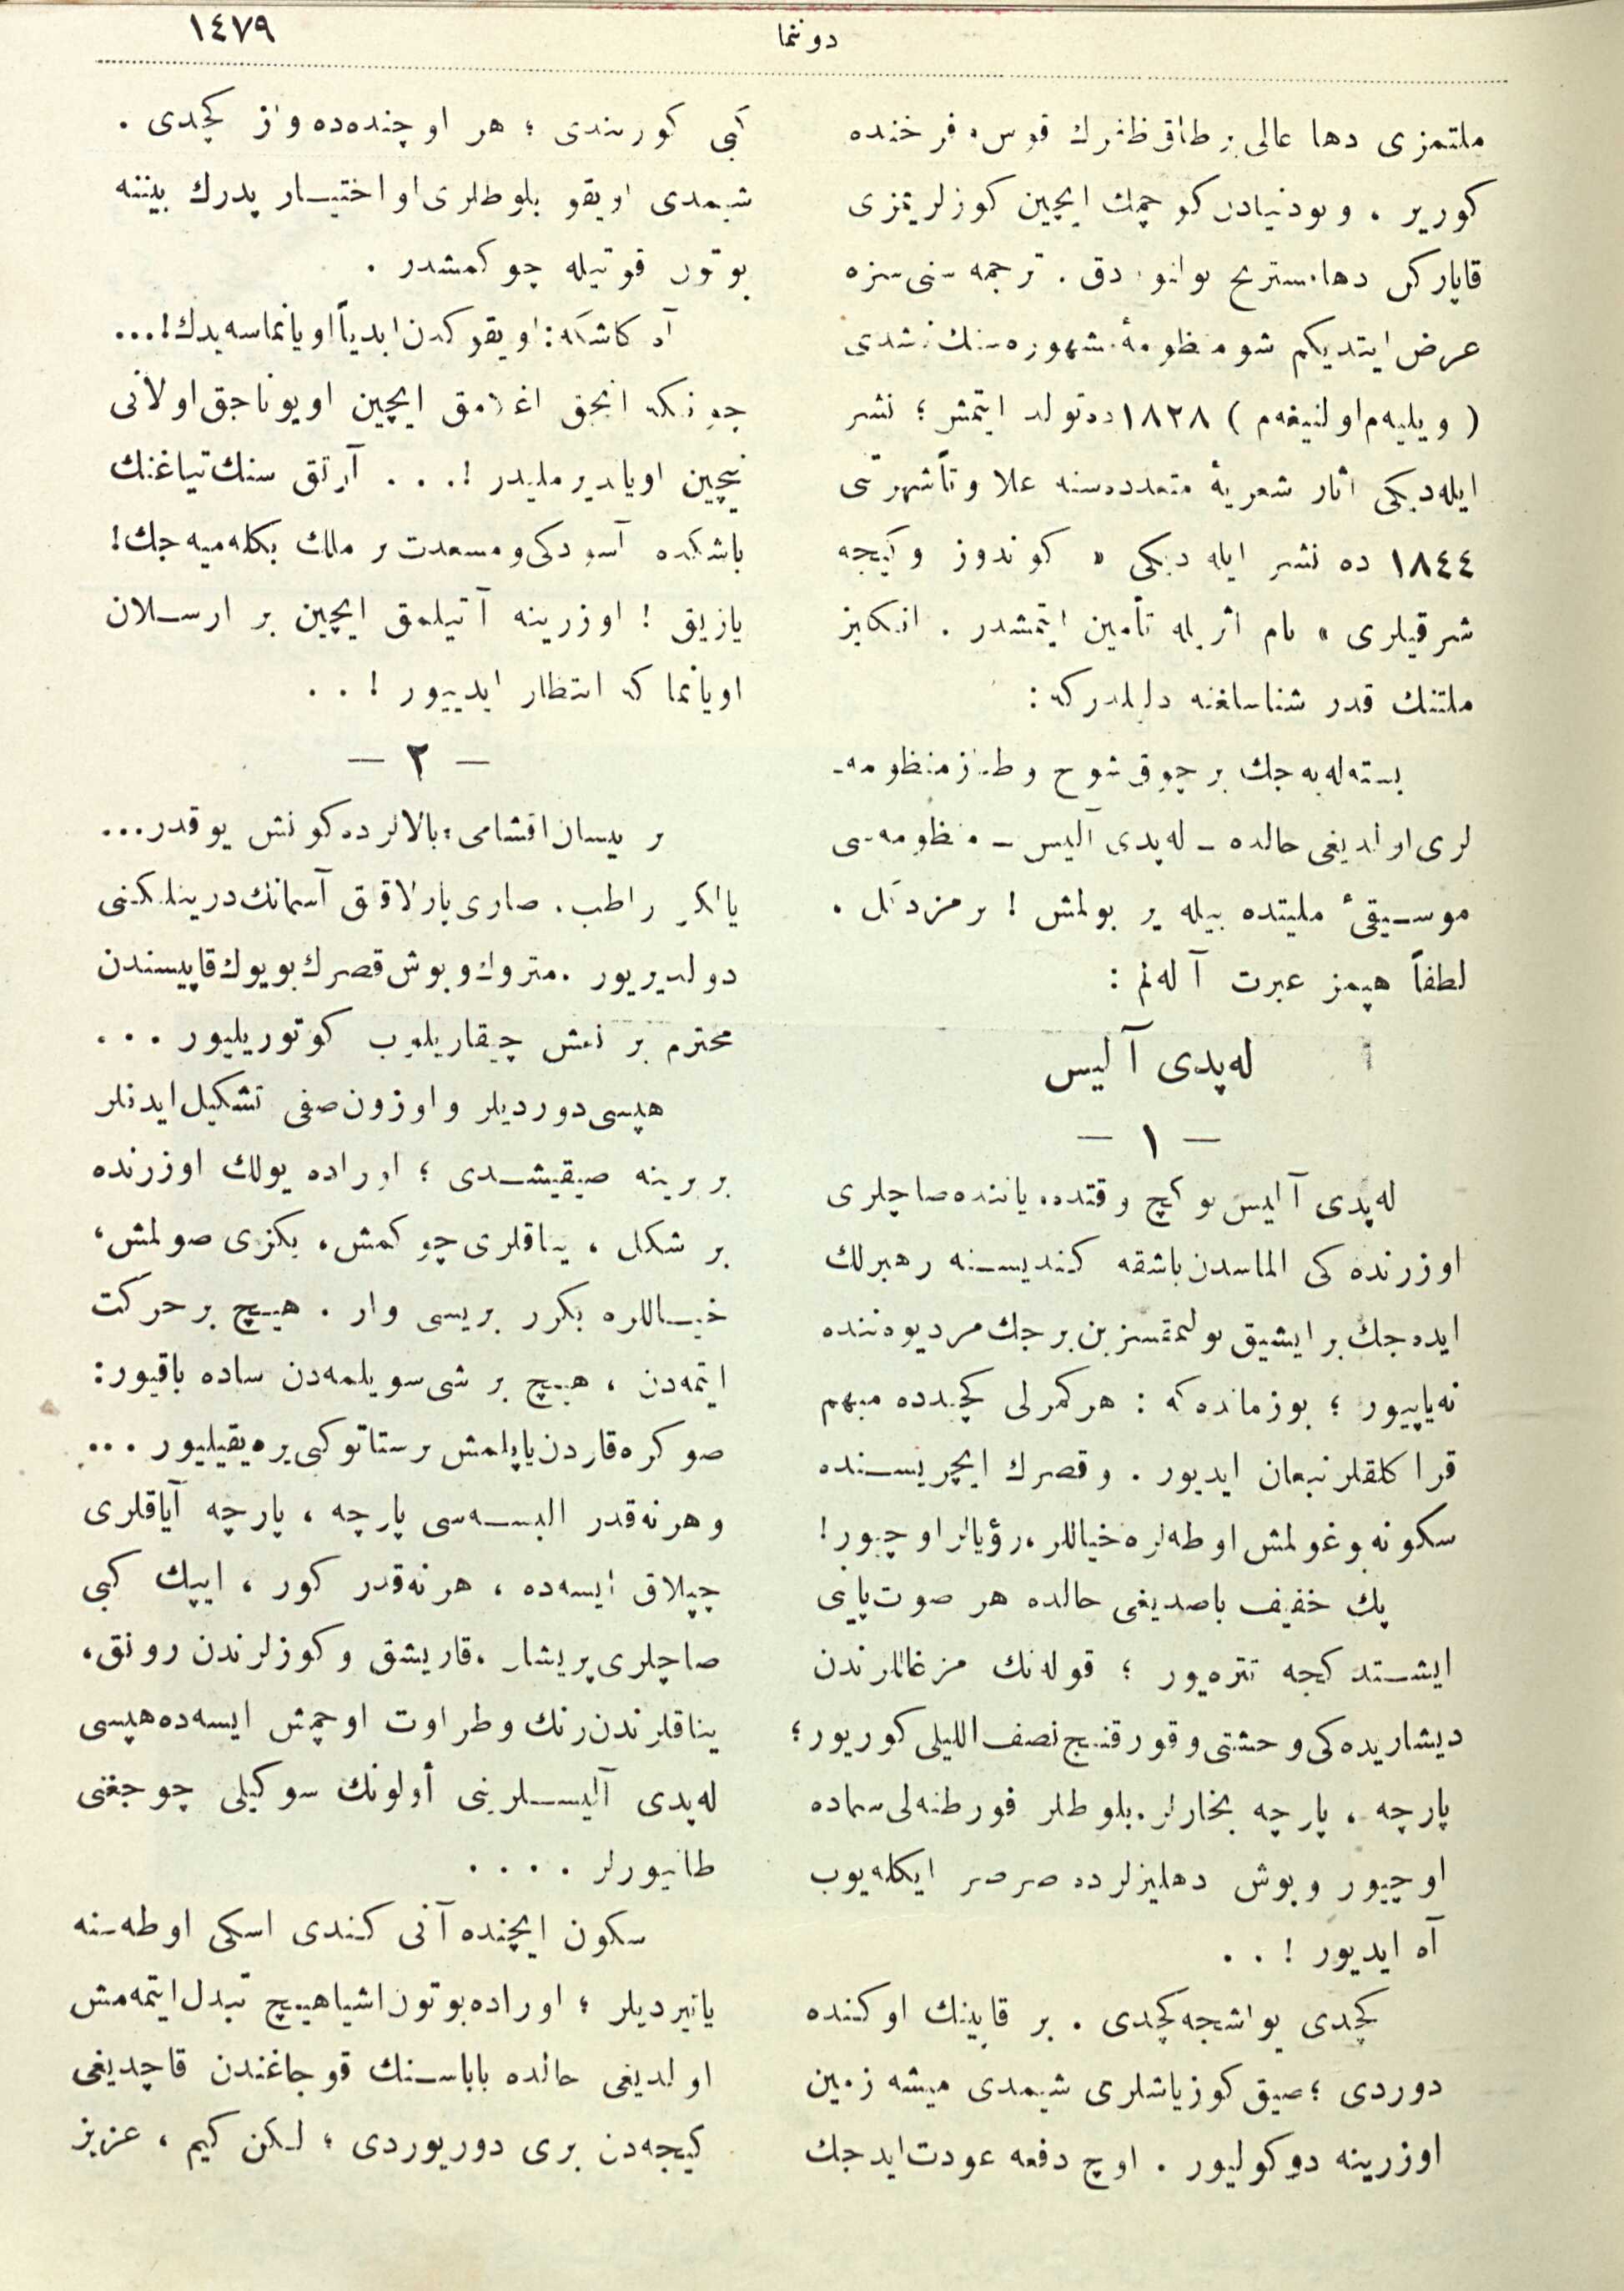 دوننما
١٤٧٩
ملتمزى دها عالى بر طاق ظفرك قوس فرخنده
كورير ، و بودنيادن كوچمك ايچين كوزلريمزى
قاپاركن دها مستريح بولنوردق . ترجمه سنى سزه
عرض ايتديكم شو منظومۀ مشهوره‌سنك نشدى
( ويليه‌م اولنيغه‌م ) ١٨٢٨ ده تولد ايتمش ؛ نشر
ايله‌ديكى اثار شعريۀ متعدده‌سنه علاوتاً شهرتى
١٨٤٤ ده نشر ايله ديكى « كوندوز و كيجه
شرقيلرى » نام اثريله تأمين ايتمشدر . انكليز
ملتنك قدر شناسلغنه دليلدركه :
بسته‌له‌يه‌جك بر چوق شوخ و طناز منظومه‌ـ
لرى اولديغى حالده ـ له‌يدى آليس ـ منظومه‌سى
موسيقئ مليتده بيله ير بولمش ! بر مزدكل .
لطفاً هپمز عبرت آله‌لم :
له‌يدى آليس
— ١ —
له‌يدى آليس بو كچ وقتده، ياننده صاچلرى
اوزرنده كى الماسدن باشقه كنديسنه رهبرلك
ايده‌جك بر ايشيق بولمقسزين بر جك مرديوه‌ننده
نه ياپييور ؛ بوزمانده كه : هر كمرلى كچيدده مبهم
قراكلقلر نبعان ايديور . و قصرك ايچريسنده
سكونه بوغولمش اوطه‌لره خياللر، رؤيالر اوچيور !
پك خفيف باصديغى حالده هر صوت پاينى
ايشتدكجه تتره‌يور ؛ قوله‌نك مزغاللرندن
ديشاريده‌كى وحشتى و قورقنج نصف الليلى كوريور ؛
پارچه ، پارچه بخارلر، بلوطلر فورطنه‌لى سماده
اوچيور و بوش دهليزلرده صرصر ايكله‌يوب
آه ايديور ! . .
كچدى يواشجه كچدى . بر قاپينك اوكنده
دوردى ؛ صيق كوز ياشلرى شيمدى ميشه زمين
اوزرينه دوكوليور . اوچ دفعه عودت ايدجك
كبى كورىندى ؛ هر اوچنده‌ده واز كچدى .
شيمدى اويقو بلوطلرى او اختيار پدرك بيننه
بوتون قوتيله چوكمشدر .
آه كاشكه : اويقوكدن ابدياً اويانماسه‌يدك !...
چونكه انجق اغلامق ايچين اويوناجق اولانى
نيچين اويانديرمليدر ! . . . آرتق سنك تياغنك
باشكده آسودكى و مسعدت بر ملك بكله‌ميه‌جك !
يازيق ! اوزرينه آتيلمق ايچين بر ارسلان
اويانماكه انتظار ايدييور ! . .
— ٢ —
بر نيسان اقشامى ؛ بالالرده كونش يوقدر ...
يالكز راطب، صارى پارلاقلق آسمانك درينلكنى
دولديريور . متروك و بوش قصرك بويوك قاپيسندن
محترم بر نعش چيقاريلوب كوتوريليور . . .
هپسى دورديلر و اوزون صفى تشكيل ايدنلر
بربرينه صيقيشدى ؛ اوراده يولك اوزرنده
بر شكل ، يناقلرى چوكمش ، بكزى صولمش ،
خياللره بكزر بريسى وار . هيچ بر حركت
ايتمه‌دن ، هيچ بر شى سويلمه‌دن ساده باقيور :
صوكره قاردن ياپلمش بر ستاتو كبى يره يقيليور ...
و هر نه‌قدر البسه‌سى پارچه ، پارچه آياقلرى
چپلاق ايسه‌ده ، هر نه‌قدر كور ، ايپك كبى
صاچلرى پريشان ، قاريشق و كوزلرندن رونق ،
يناقلرندن رنك و طراوت اوچمش ايسه‌ده هپسى
له‌يدى آليسلرينى أولونك سوكيلى چوجغنى
طانيورلر . . . .
سكون ايچنده آنى كندى اسكى اوطه‌سنه
ياتيرديلر ؛ اوراده بوتون اشيا هيچ تبدل ايتمه‌مش
اولديغى حالده باباسنك قوجاغندن قاچديغى
كيجه‌دن برى دوريوردى ؛ لكن كيم ، عزيز